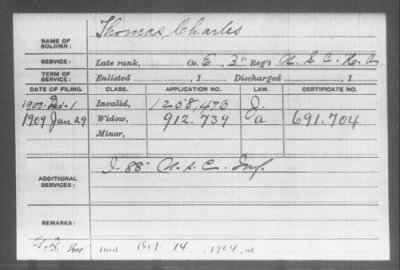 NAME OF SOLDIER: Thomas, Charles
SERVICE: Late rank, Co. E, 3" Reg't U.S.C.H.A.
TERM OF SERVICE: Enlisted , 1 Discharged , 1
DATE OF FILING. CLASS. APPLICATION NO. LAW. CERTIFICATE NO.
Invalid, 1258.473 J.
1909 Jan 29 Widow, 912.739 a 691.704
Minor,
ADDITIONAL SERVICES: I-88" U.S.C. Inf.
REMARKS:
Died Oct 14, 1904, at